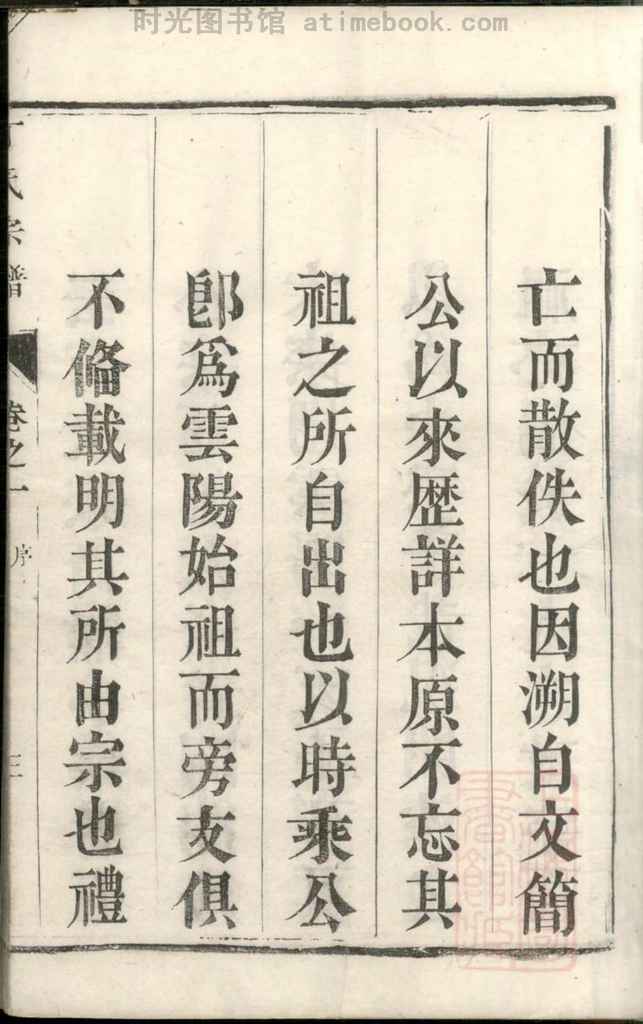 时光图书馆 atimebook.com
亡而散佚也因溯自文簡
公以來歷詳本原不忘其
祖之所自出也以時乘公
郎爲雲陽始祖而旁支俱
不俻載明其所由宗也禮
氏宗譜
卷之一
序
三